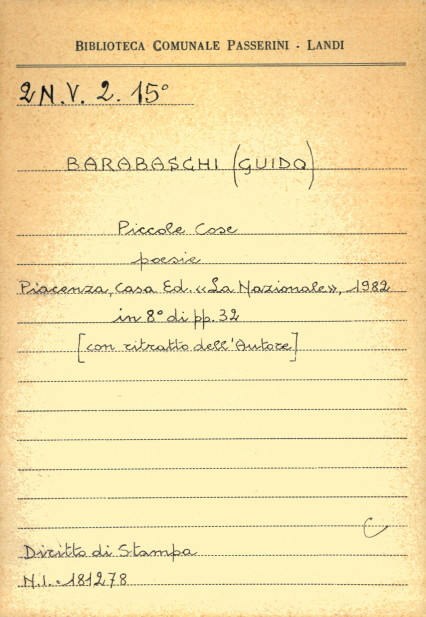 BIBLIOTECA COMUNALE PASSERINI - LANDI
2N.V. 2. 15°
BARABASCHI (GUIDO)
Piccole Cose
poesie
Piacenza, Casa Ed. «La Nazionale», 1982
in 8° di pp. 32
[con ritratto dell'Autore]
C
Diritto di Stampa
N.I. - 181278